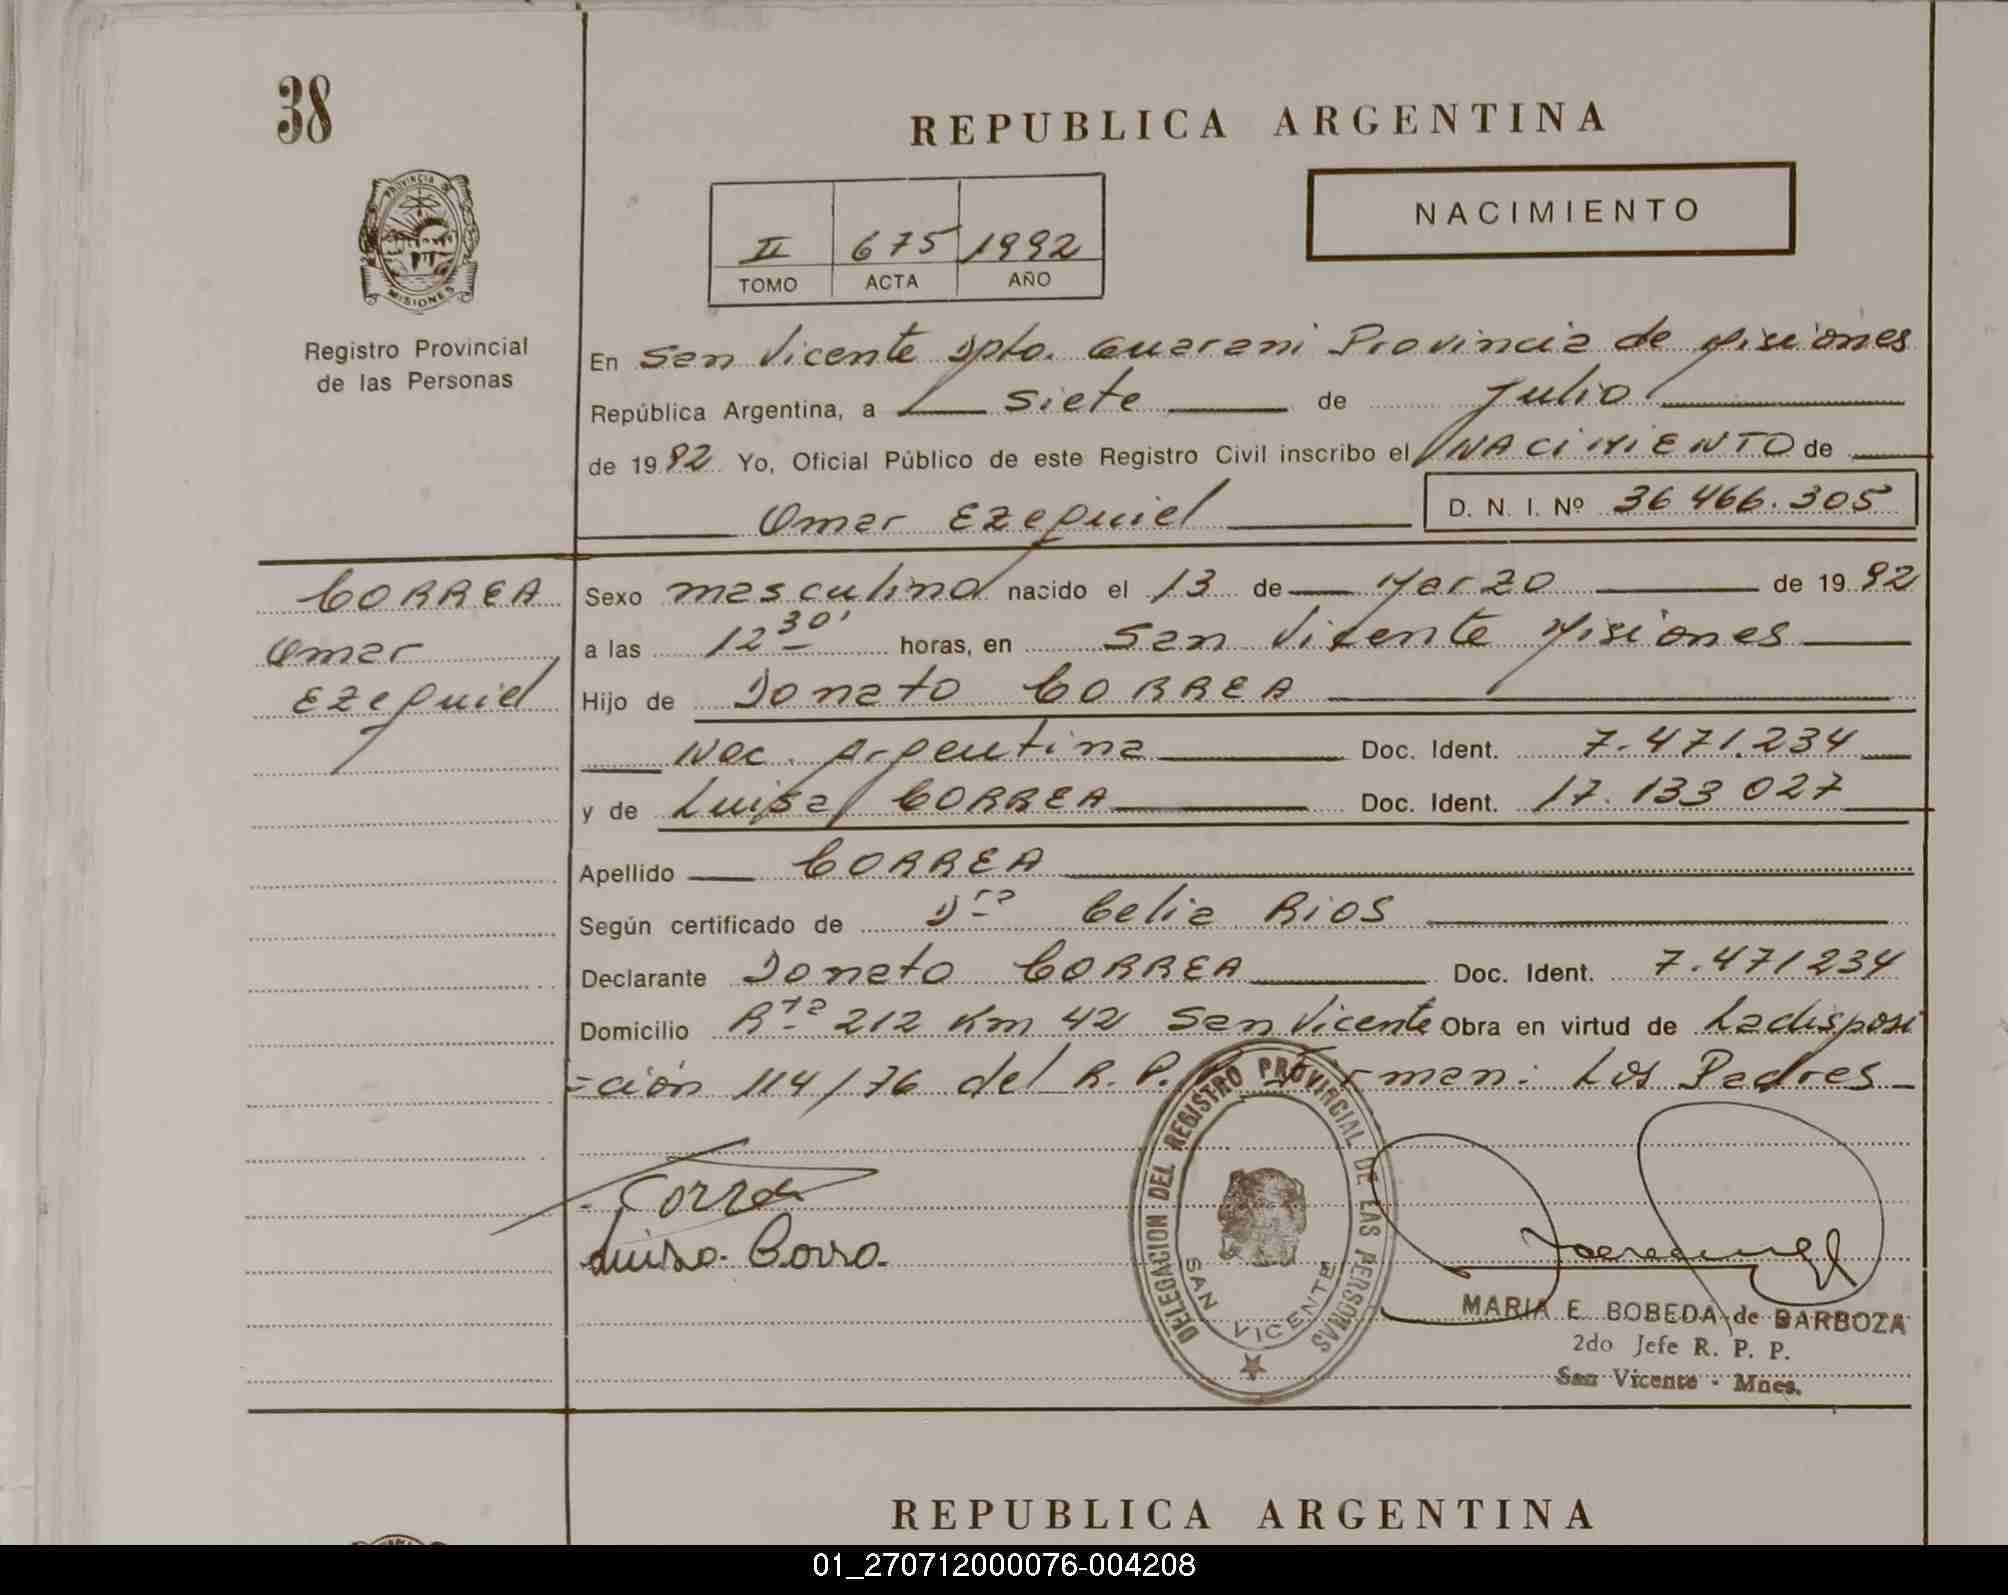 38
REPUBLICA ARGENTINA
PROVINCIA DE
MISIONES
NACIMIENTO
II 675 1992
TOMO ACTA AÑO
Registro Provincial
de las Personas
En San Vicente Dpto. Guarani Provincia de Misiones
República Argentina, a siete de Julio
de 1992 Yo, Oficial Público de este Registro Civil inscribo el NACIMIENTO de
Omar Ezequiel D. N. I. Nº 36 466.305
CORREA
Omar
Ezequiel
Sexo masculino nacido el 13 de Marzo de 1992
a las 12 30' horas, en San Vicente Misiones
Hijo de Donato CORREA
Nac. Argentina Doc. Ident. 7.471.234
y de Luisa CORREA Doc. Ident. 17.133 027
Apellido CORREA
Según certificado de Dra Celia Rios
Declarante Donato CORREA Doc. Ident. 7.471234
Domicilio Rta 212 Km 42 San Vicente Obra en virtud de La disposi
=ción 114/76 del R. P. man: Los Padres
Correa
Luisa Correa
DELEGACION DEL REGISTRO PROVINCIAL DE LAS PERSONAS
SAN VICENTE
MARIA E. BOBEDA de BARBOZA
2do Jefe R. P. P.
San Vicente - Mnes.
REPUBLICA ARGENTINA
01_270712000076-004208